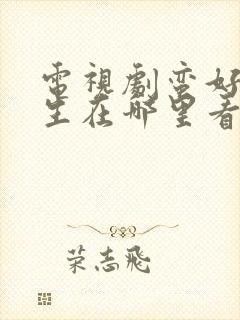 電視劇蛮好
生在哪里看
荣志飛